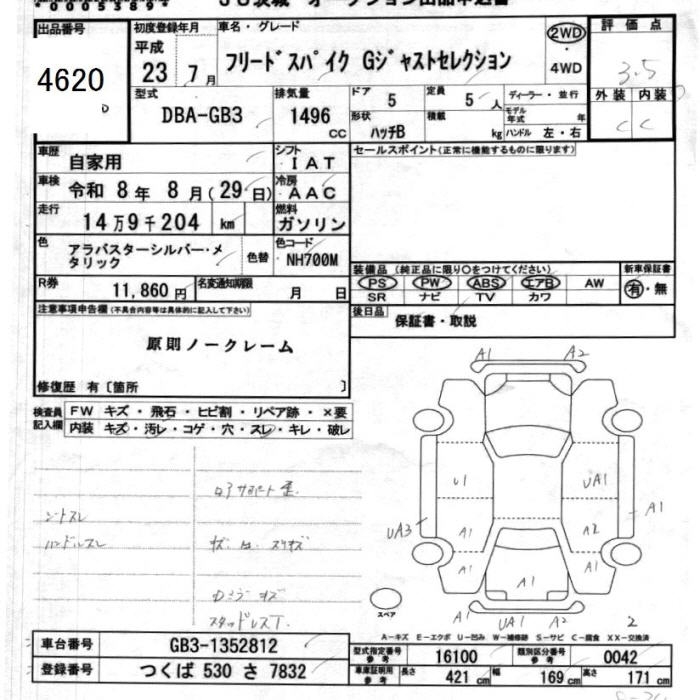 出品番号
4620
初度登録年月
平成
23年 7月
車名・グレード
フリードスパイク Gジャストセレクション
2WD
・
4WD
評価点
3.5
外装 内装
C C
型式
DBA-GB3
排気量
1496
CC
ドア
5
定員
5人
形状
ハッチB
積載
kg
ディーラー・並行
モデル年式 年
ハンドル 左・右
車歴
自家用
シフト
IAT
車検
令和 8年 8月(29日)
冷房
AAC
走行
14万9千204 km
燃料
ガソリン
色
アラバスターシルバー・メタリック
色替
色コード
NH700M
R券
11,860円
名変通知期限
月 日
セールスポイント(正常に機能するものに限ります)
装備品(純正品に限り○をつけてください)
PS PW ABS エアB AW
SR ナビ TV カワ
新車保証書
有・無
後日品
保証書・取説
注意事項申告欄(不具合内容等は具体的に記入して下さい)
原則ノークレーム
修復歴 有〔箇所 〕
検査員記入欄
FW キズ・飛石・ヒビ割・リペア跡・×要
内装 キズ・汚レ・コゲ・穴・スレ・キレ・破レ
シートスレ
ハンドルスレ
スタッドレス
A1 A2
U1 UA1
UA3 A1 A2 A1
A1 A1 A1
A1 UA1 A2 2
スペア
A-キズ E-エクボ U-凹み W-補修跡 S-サビ C-腐食 XX-交換済
車台番号
GB3-1352812
登録番号
つくば 530 さ 7832
型式指定番号
参考
16100
類別区分番号
参考
0042
車庫証明用
参考
長さ 421 cm 幅 169 cm 高さ 171 cm